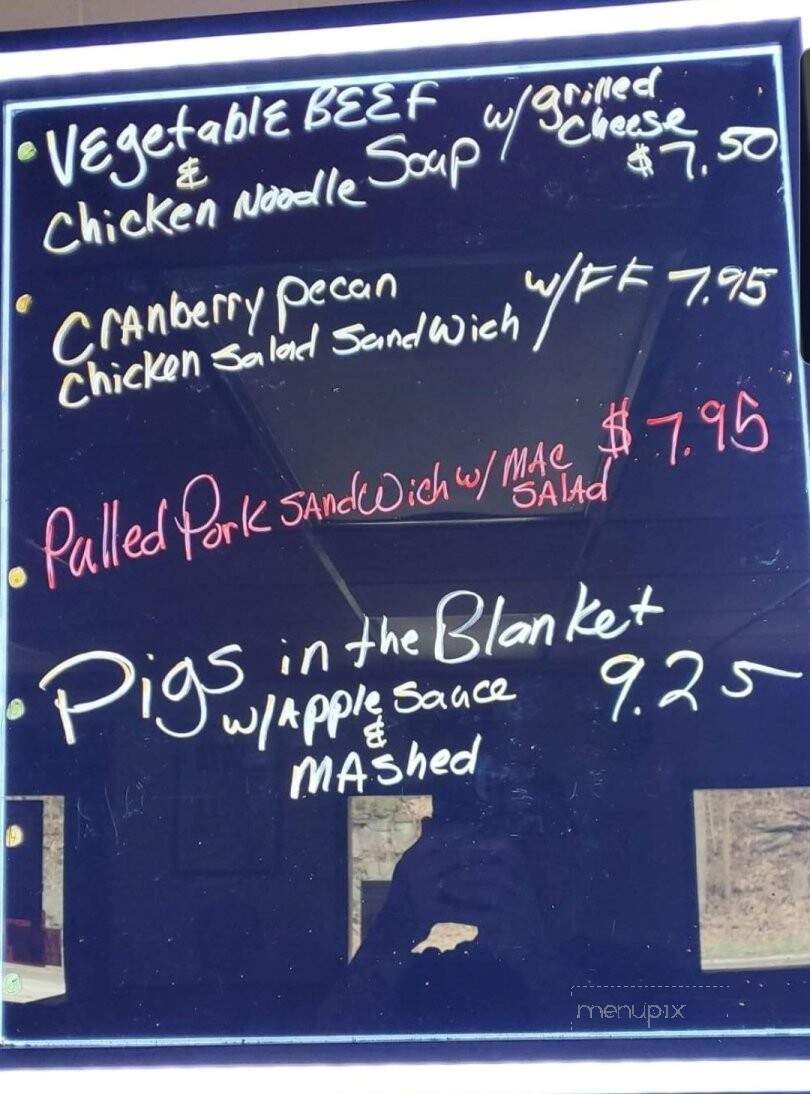 Vegetable BEEF w/grilled cheese
& Soup $7.50
Chicken Noodle
Cranberry pecan w/FF 7.95
Chicken Salad Sandwich
Pulled Pork SandWich w/ MAC SALAd $7.95
Pigs in the Blanket
w/Apple Sauce 9.25
&
MAShed
menupix